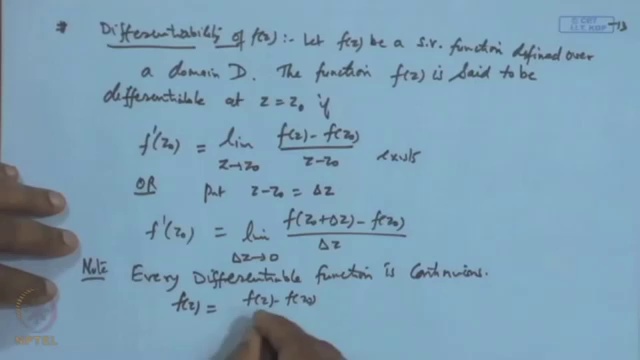 # Differentiability of f(z) :- Let f(z) be a s.v. function defined over
a domain D. The function f(z) is said to be
differentiable at z = z₀ if
f'(z₀) = lim_{z→z₀} (f(z) - f(z₀))/(z - z₀) exists
OR put z - z₀ = Δz
f'(z₀) = lim_{Δz→0} (f(z₀+Δz) - f(z₀))/Δz
Note Every Differentiable function is continuous.
f(z) = f(z) - f(z₀)
© CET
I.I.T. KGP
NPTEL